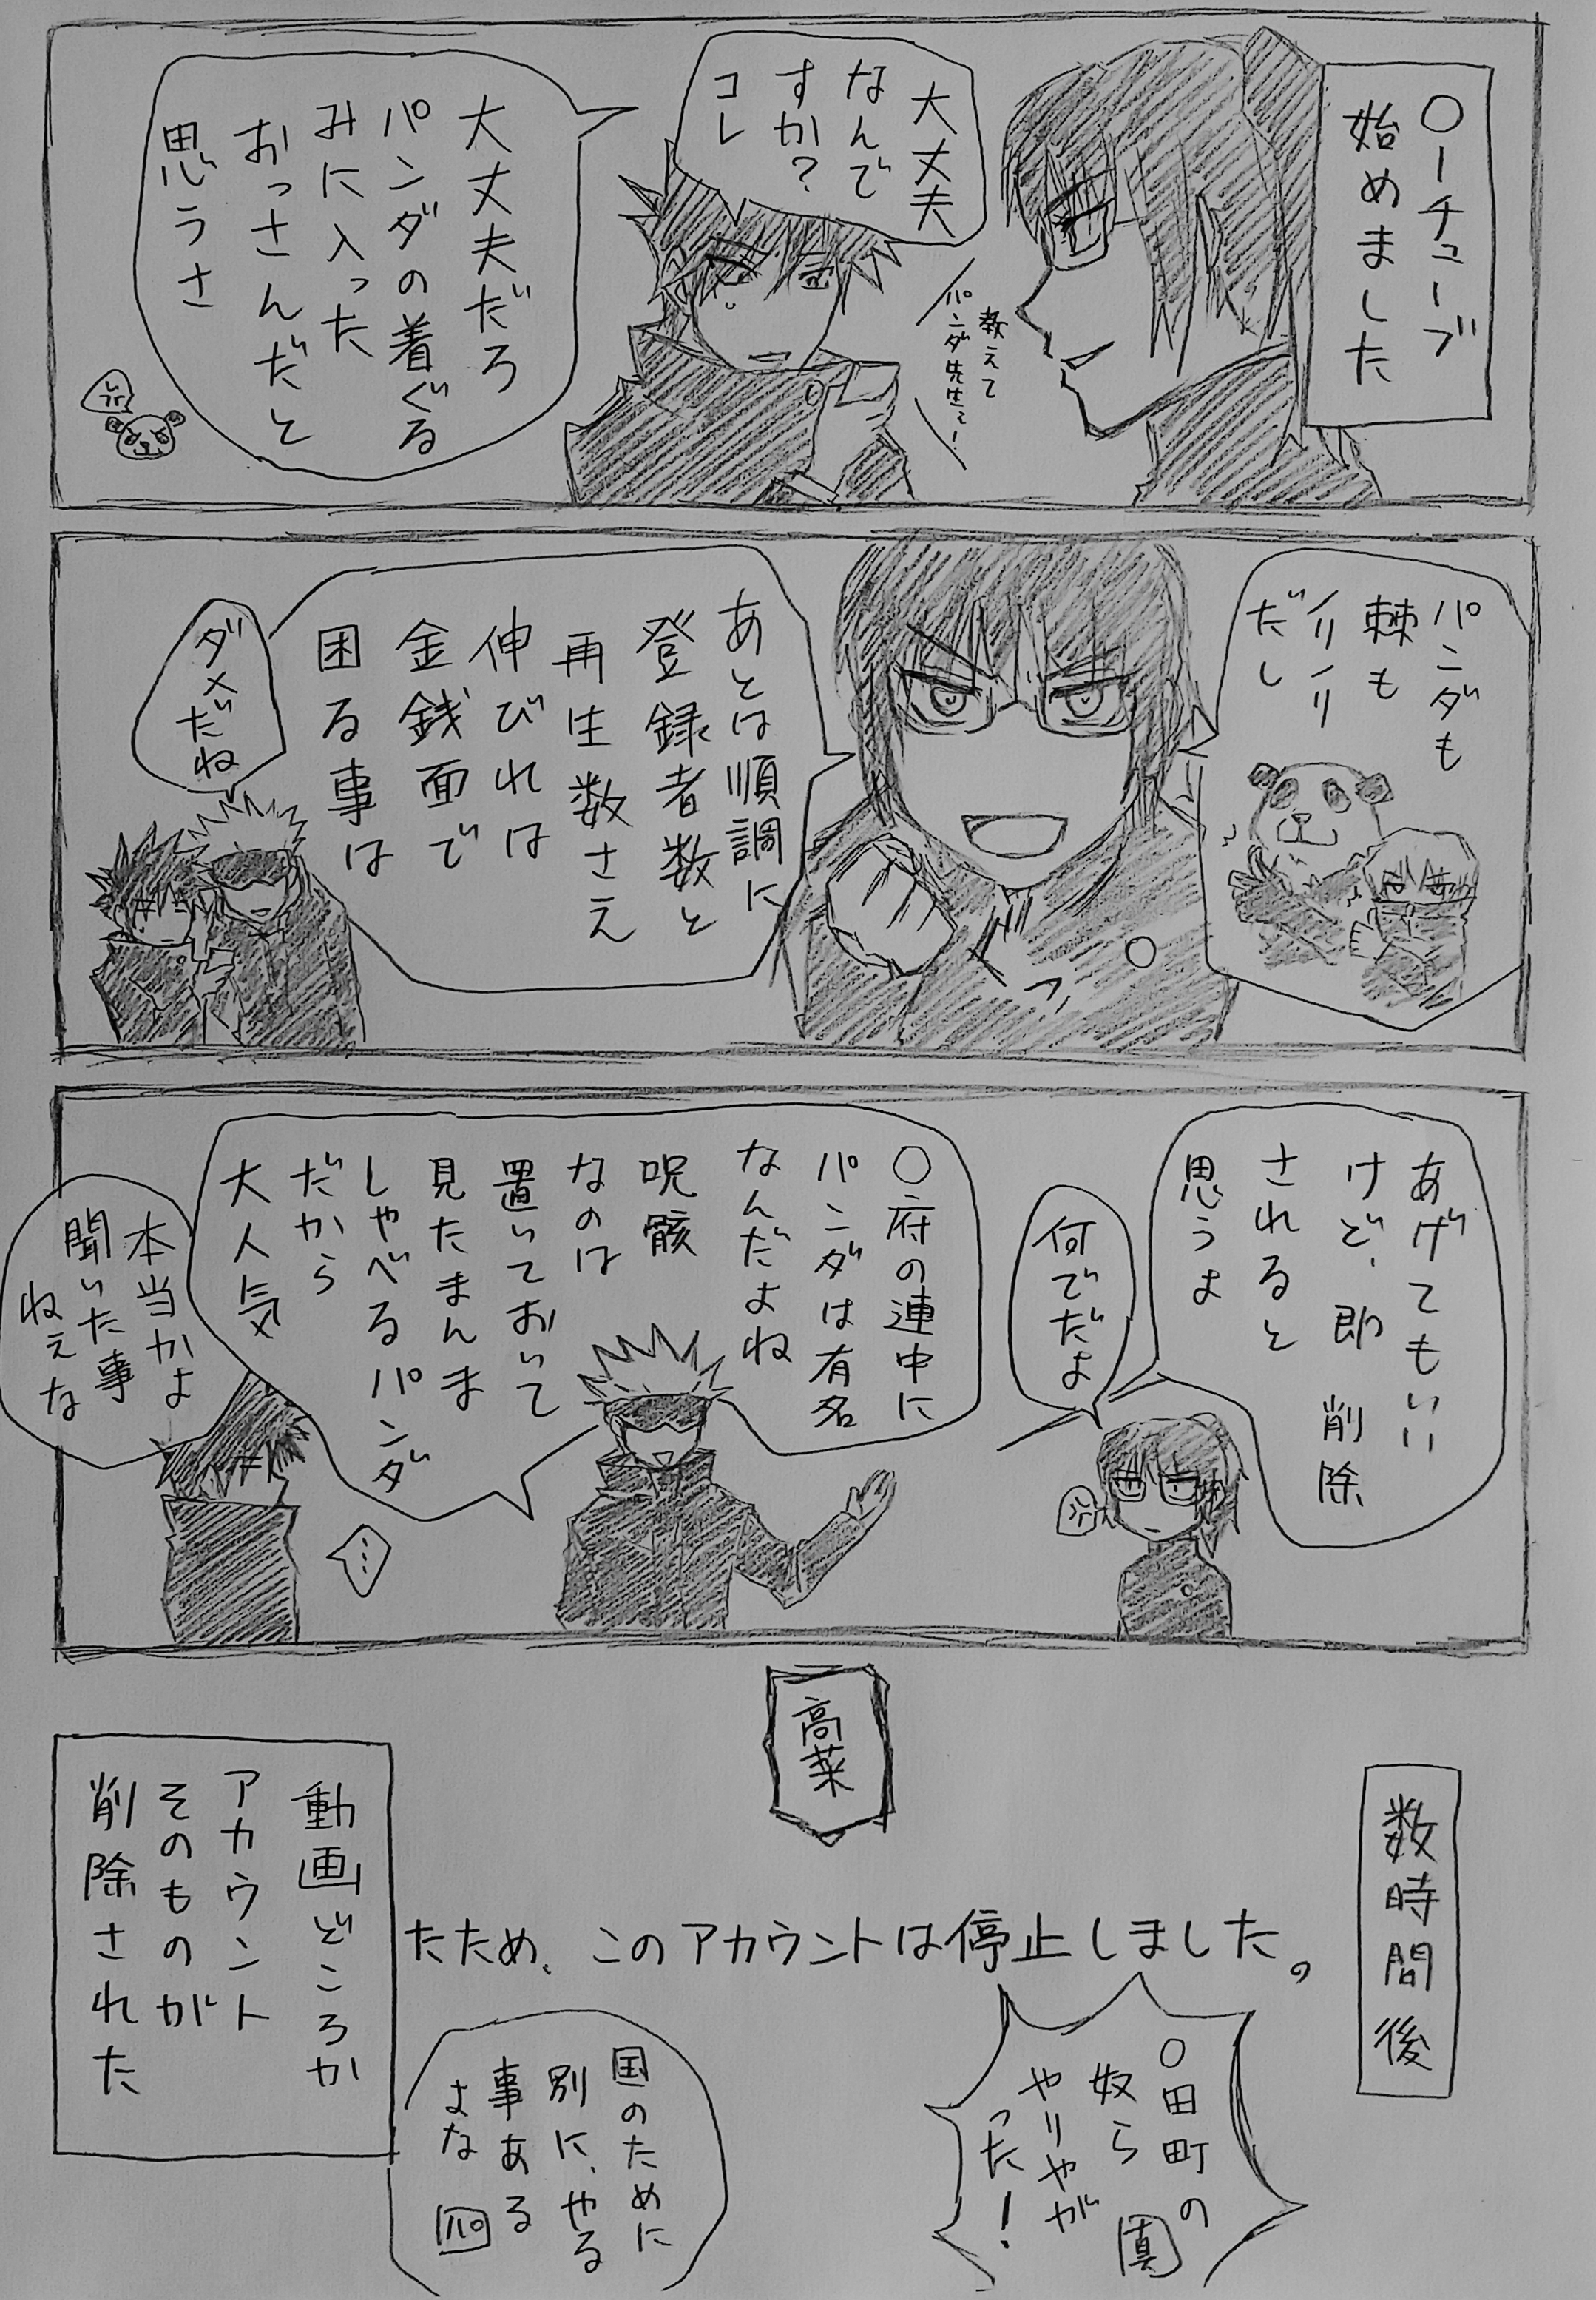 〇ーチューブ
始めました
大丈夫
なんで
すか？
コレ
教えて
パンダ先生ェ！
大丈夫だろ
パンダの着ぐる
みに入った
おっさんだと
思うさ
パンダも
棘も
ノリノリ
だし
あとは順調に
登録者数と
再生数さえ
伸びれば
金銭面で
困る事は
ダメだね
あげてもいい
けど、即削除
されると
思うよ
何でだよ
〇府の連中に
パンダは有名
なんだよね
呪骸
なのは
置いておいて
見たまんま
しゃべるパンダ
だから
大人気
本当かよ
聞いた事
ねぇな
高菜
数時間後
たため、このアカウントは停止しました。
〇田町の
奴ら
やりやが
った！
真
国のために
別に、やる
事ある
よな
パ
動画どころか
アカウント
そのものが
削除された